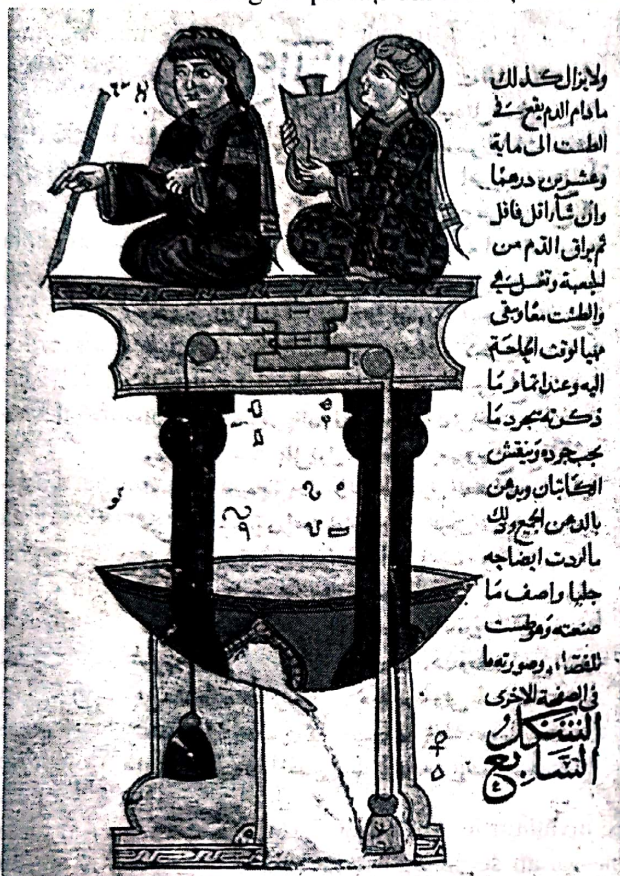 ولا يزال كذلك
ما دام الدم يقع في
الطست الى ماية
وعشرين درهما
وان شا اقل فاقل
ثم يراق الدم من
وتغسل هي
والطست معا وتبقى
الوقت الحاجة
اليه وعند اتمام ما
ذكرته يجرد ما
يجب جرده وينقش
الكاتبان ويدهن
بالدهن الجميع وذلك
ما اردت ايضاحه
جليا واصف ما
صنعته وهو طست
وصورته ما
في الصفحة الاخرى
الشكل
السابع